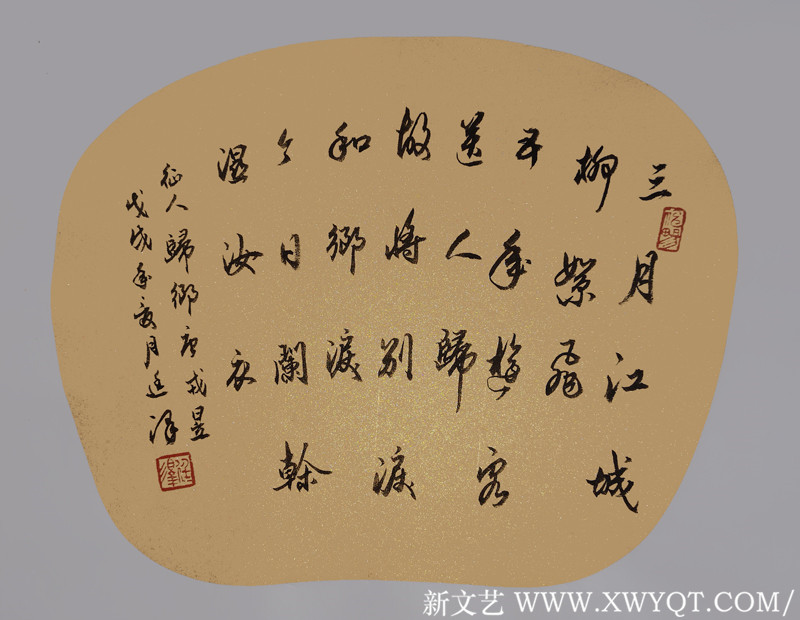 三月江城
柳絮飛
五年游客
送人歸
故將别淚
和鄉淚
今日闌幹
濕汝衣
征人歸鄉唐戎昱
戊戌年夏月廷泽
新文艺 WWW.XWYQT.COM/